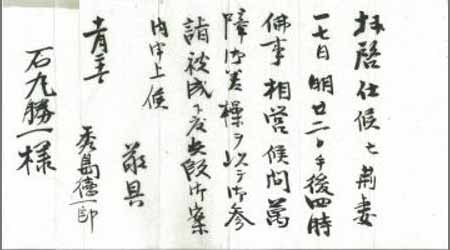 拝啓仕候亡荊妻
一七日明廿二日午後四時
佛事相営候間萬
障御差操ヲ以テ御参
詣被成下度此段御案
内申上候
敬具
青善
秀島徳一郎
石丸勝一様